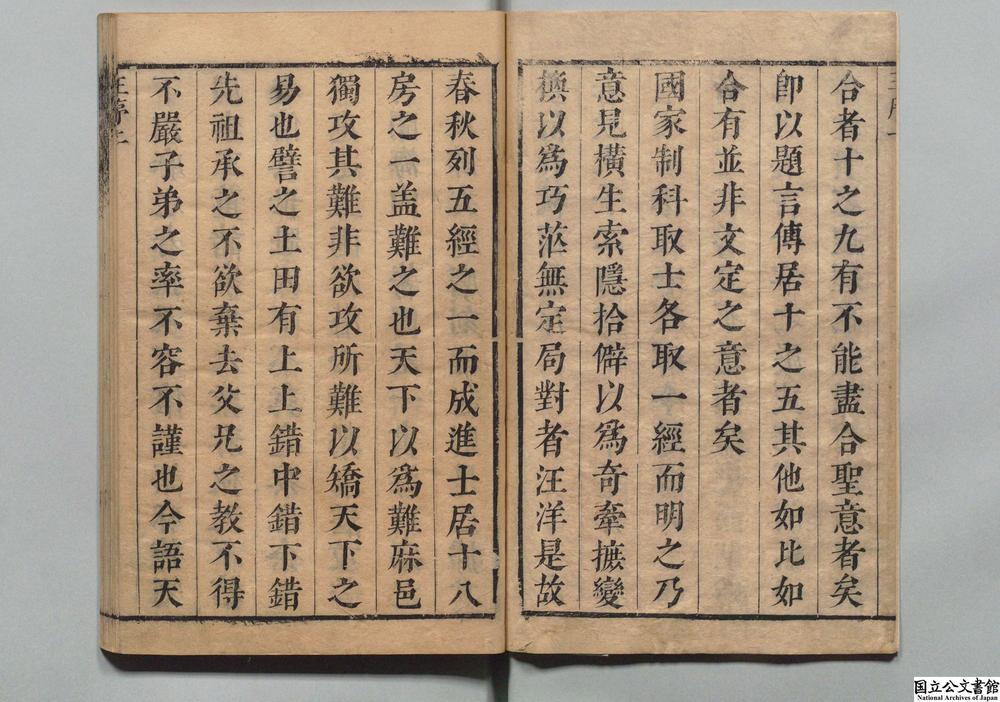 合者十之九有不能盡合聖意者矣
卽以題言傳居十之五其他如比如
合有並非文定之意者矣
國家制科取士各取一經而明之乃
意見橫生索隱拾僻以爲奇牽摭變
換以爲巧茫無定局對者汪洋是故
春秋列五經之一而成進士居十八
房之一盖難之也天下以爲難麻邑
獨攻其難非欲攻所難以矯天下之
易也譬之土田有上上錯中錯下錯
先祖承之不欲棄去父兄之教不得
不嚴子弟之率不容不謹也今語天
国立公文書館
National Archives of Japan